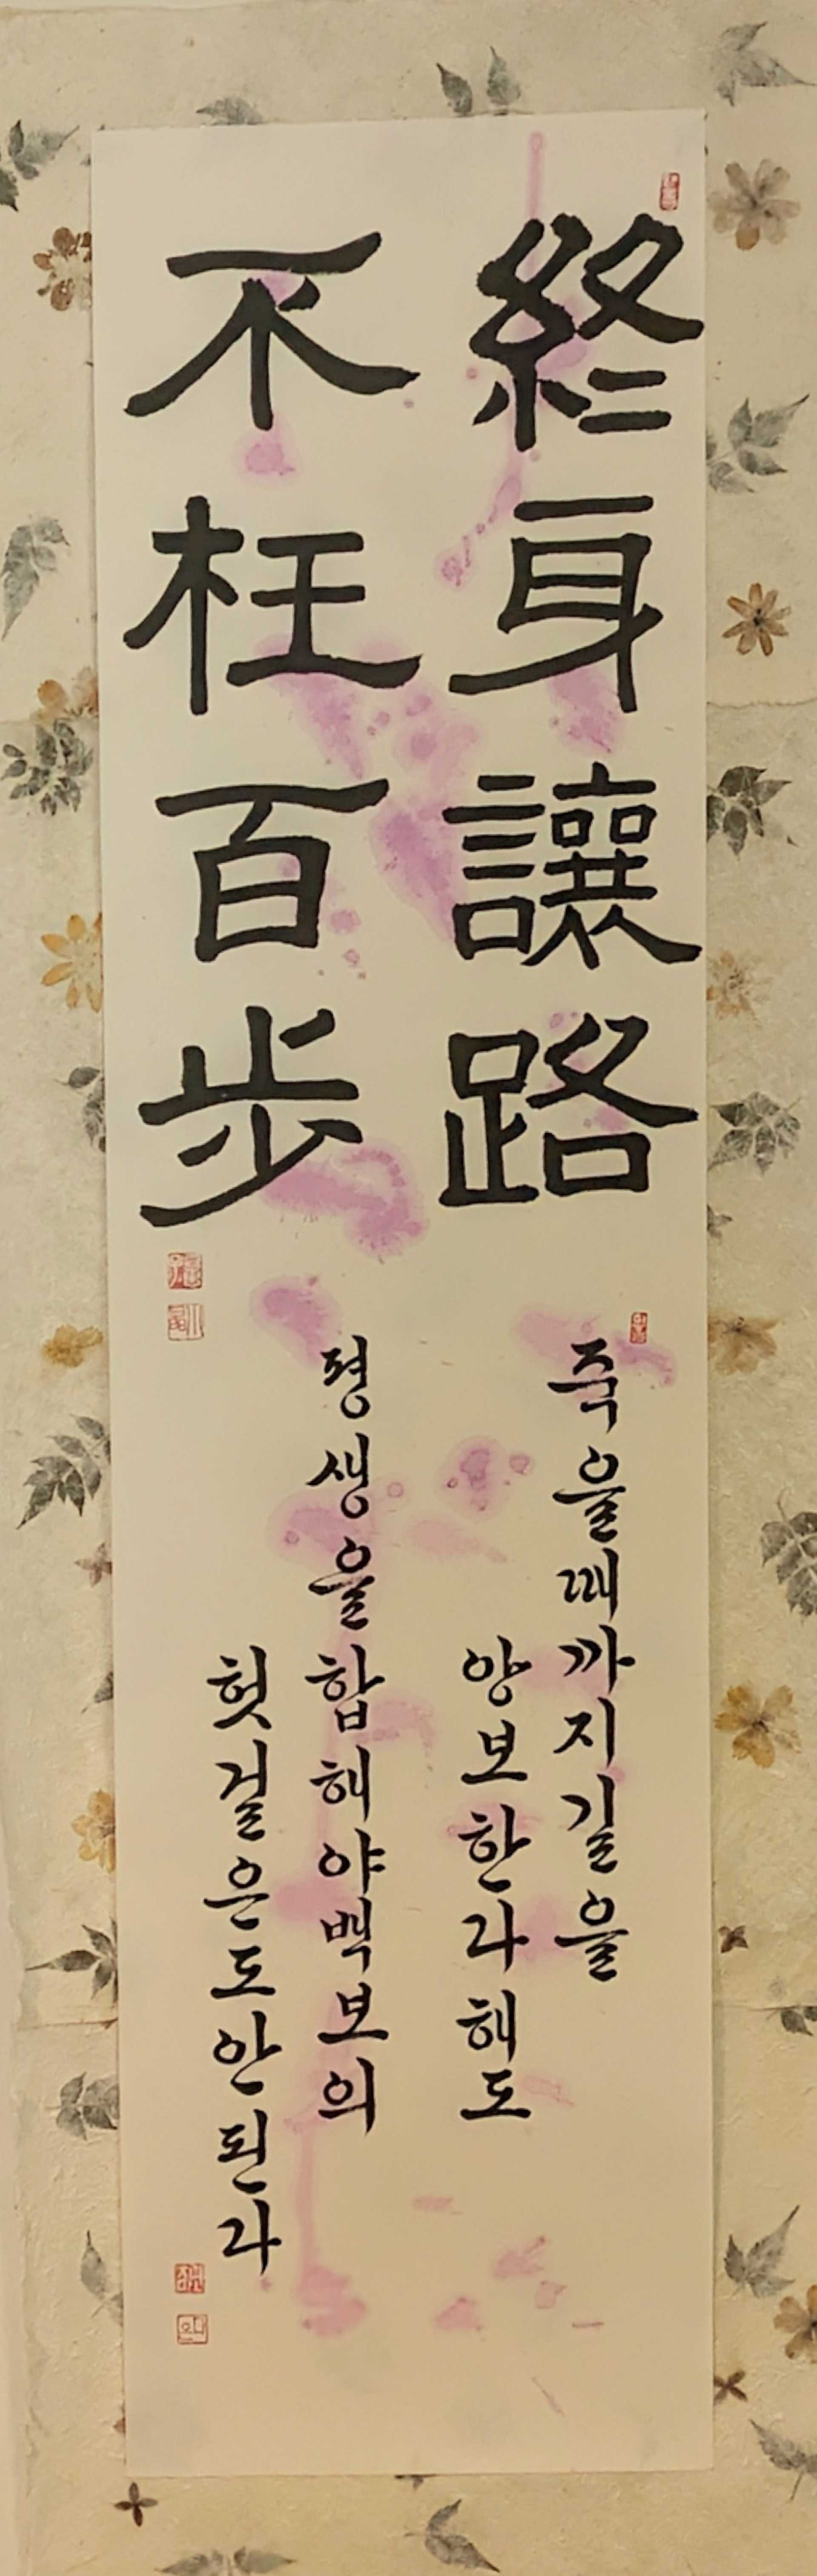 終身讓路
不枉百步
죽을때까지길을
양보한라해도
평생을합해야백보의
헛걸은도안된라